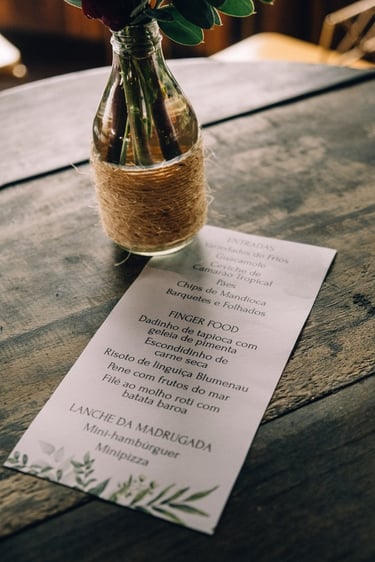 ENTRADAS
Variedades de Frios
Guacamole
Ceviche de
Camarão Tropical
Pães
Chips de Mandioca
Barquetes e Folhados
FINGER FOOD
Dadinho de tapioca com
geleia de pimenta
Escondidinho de
carne seca
Risoto de linguiça Blumenau
Pene com frutos do mar
Filé ao molho roti com
batata baroa
LANCHE DA MADRUGADA
Mini-hambúrguer
Minipizza